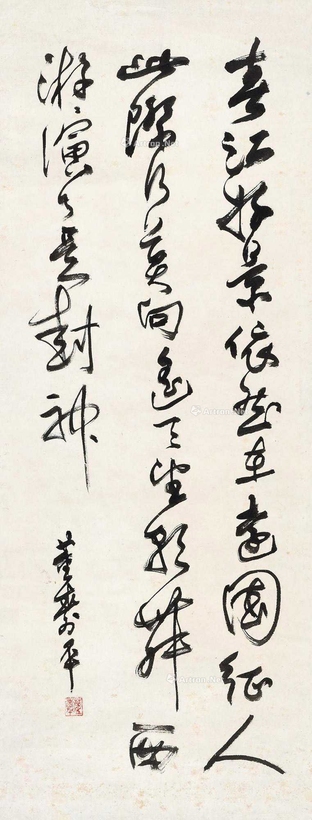 春江好景依然在遠國征人
此際行莫向遥天望歌舞西
游演了是封神
董壽平